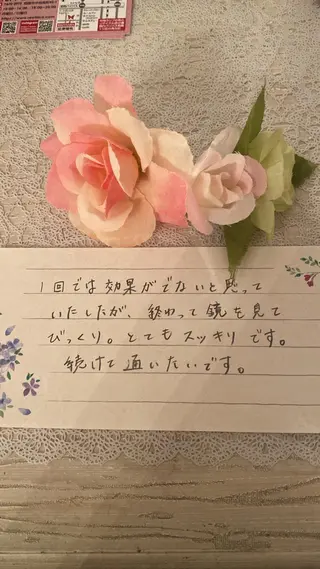 1回では効果がでないと思って
いたしたが、終わって鏡を見て
びっくり。とてもスッキリです。
続けて通いたいです。